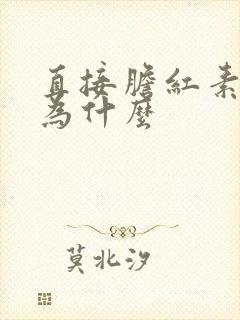 直接膽紅素
為什麼
莫北汐